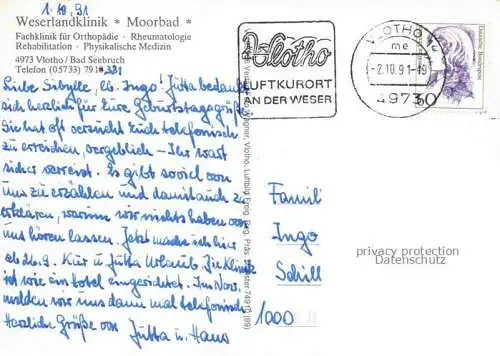 1.10.91
Weserlandklinik * Moorbad *
Fachklinik für Orthopädie · Rheumatologie
Rehabilitation · Physikalische Medizin
4973 Vlotho / Bad Seebruch
Telefon (05733) 791 -331
Liebe Sibylle, lb. Ingo! Jutta bedankt
sich herzlich für Eure Geburtstagsgrüße.
Sie hat oft versucht Euch telefonisch
zu erreichen, vergeblich – Ihr wart
sicher verreist. Es gibt soviel von
uns zu erzählen und damit auch zu
erklären, warum wir nichts haben von
uns hören lassen. Jetzt mache ich hier
ab 26.9. Kur u. Jutta Urlaub. Die Klinik
ist wie ein Hotel eingerichtet. Im Nov.
melden wir uns dann mal telefonisch
Herzliche Grüße von Jutta u. Hans
Vlotho
LUFTKURORT
AN DER WESER
VLOTHO
me
-2.10.91-19
4973
Deutsche Bundespost
Familie
Ingo
Schill
1000
privacy protection
Datenschutz